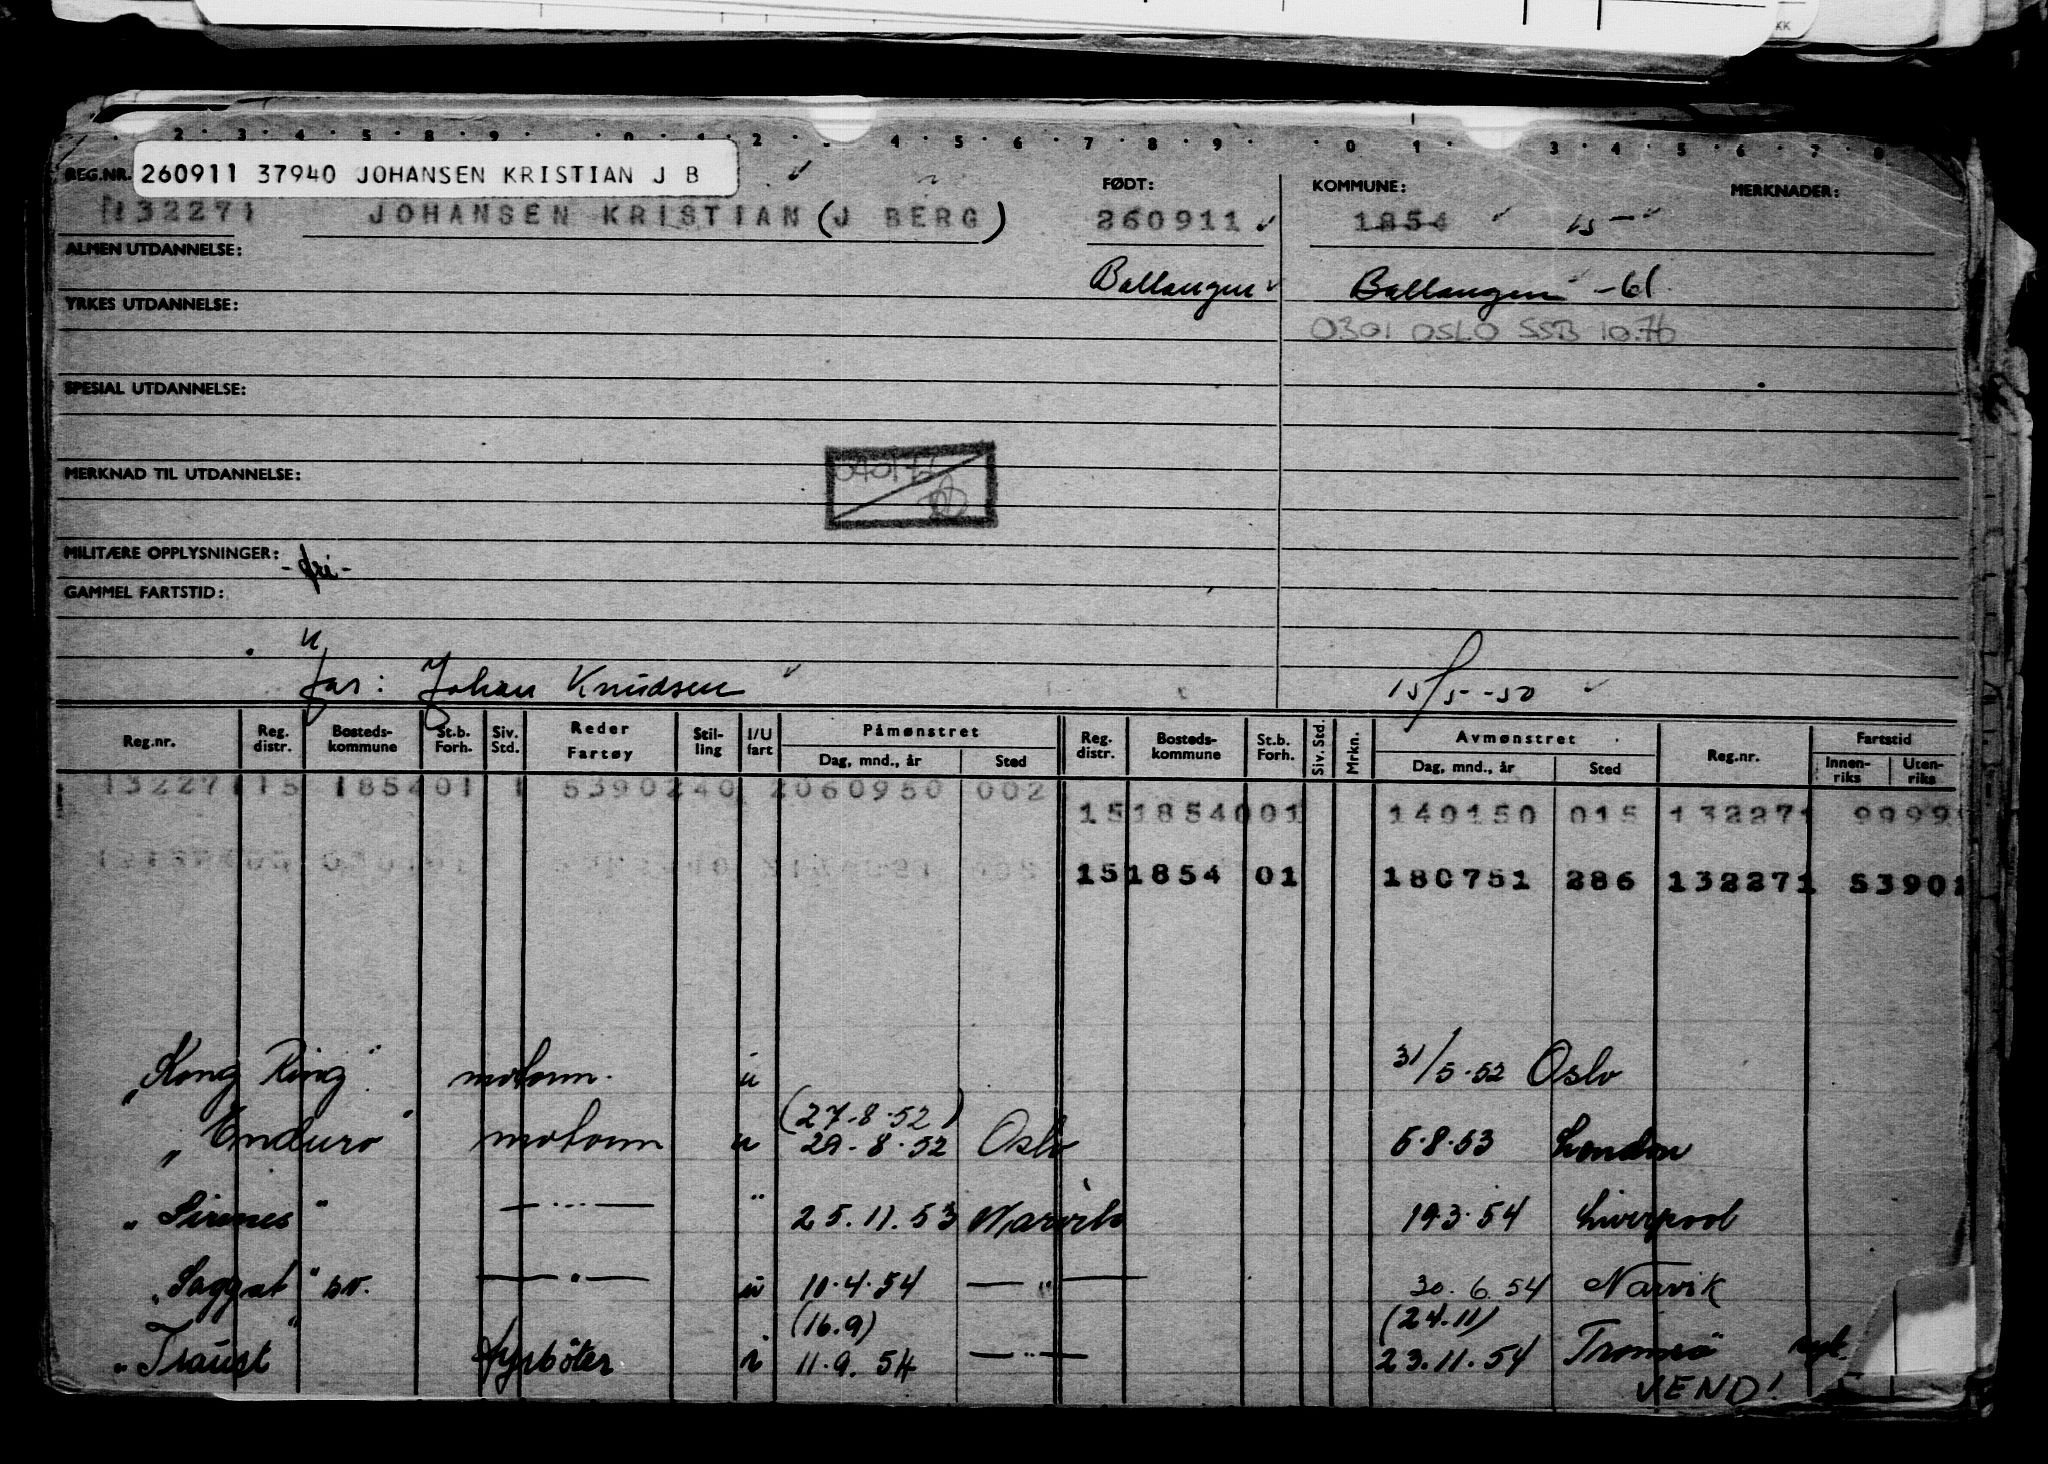 KK
2 3 4 5 8 9 0 1 2 4 5 6 7 8 9 0 1 3 4 5 6 7 8
REG.NR. 260911 37940 JOHANSEN KRISTIAN J B FØDT: KOMMUNE: MERKNADER:
132271 JOHANSEN KRISTIAN (J BERG) 260911 1854 15 -
ALMEN UTDANNELSE:
Ballangen Ballangen -61.
YRKES UTDANNELSE:
0301 OSLO SSB 10.76
SPESIAL UTDANNELSE:
MERKNAD TIL UTDANNELSE:
MILITÆRE OPPLYSNINGER: - fri -
GAMMEL FARTSTID:
u
far: Johan Knudsen 15/5-50
Reg.nr. Reg. distr. Bosteds-kommune St.b. Forh. Siv. Std. Reder Fartøy Stil-ling I/U fart Påmønstret Dag, mnd., år Sted Reg. distr. Bosteds-kommune St.b. Forh. Siv. Std. Mrkn. Avmønstret Dag, mnd., år Sted Reg.nr. Fartstid Innen-riks Uten-riks
132271 15 1854 01 1 5390240 2060950 002
15 1854001 140150 015 132271 9999
15 1854 01 180751 286 132271 53901
"Kong Ring" motorm. u 31/5.52 Oslo
(27-8-52)
"Enduro" motorm u 29-8-52 Oslo 5.8.53 London
"Sirenes" — ... — " 25.11.53 Narvik 19.3.54 Liverpool
"Saggat" sv. — " — u 10.4.54 — " — 30.6.54 Narvik
(16.9) (24.11)
"Traust" fyrbøter i 11.9.54 — " — 23.11.54 Tromsö
VEND!